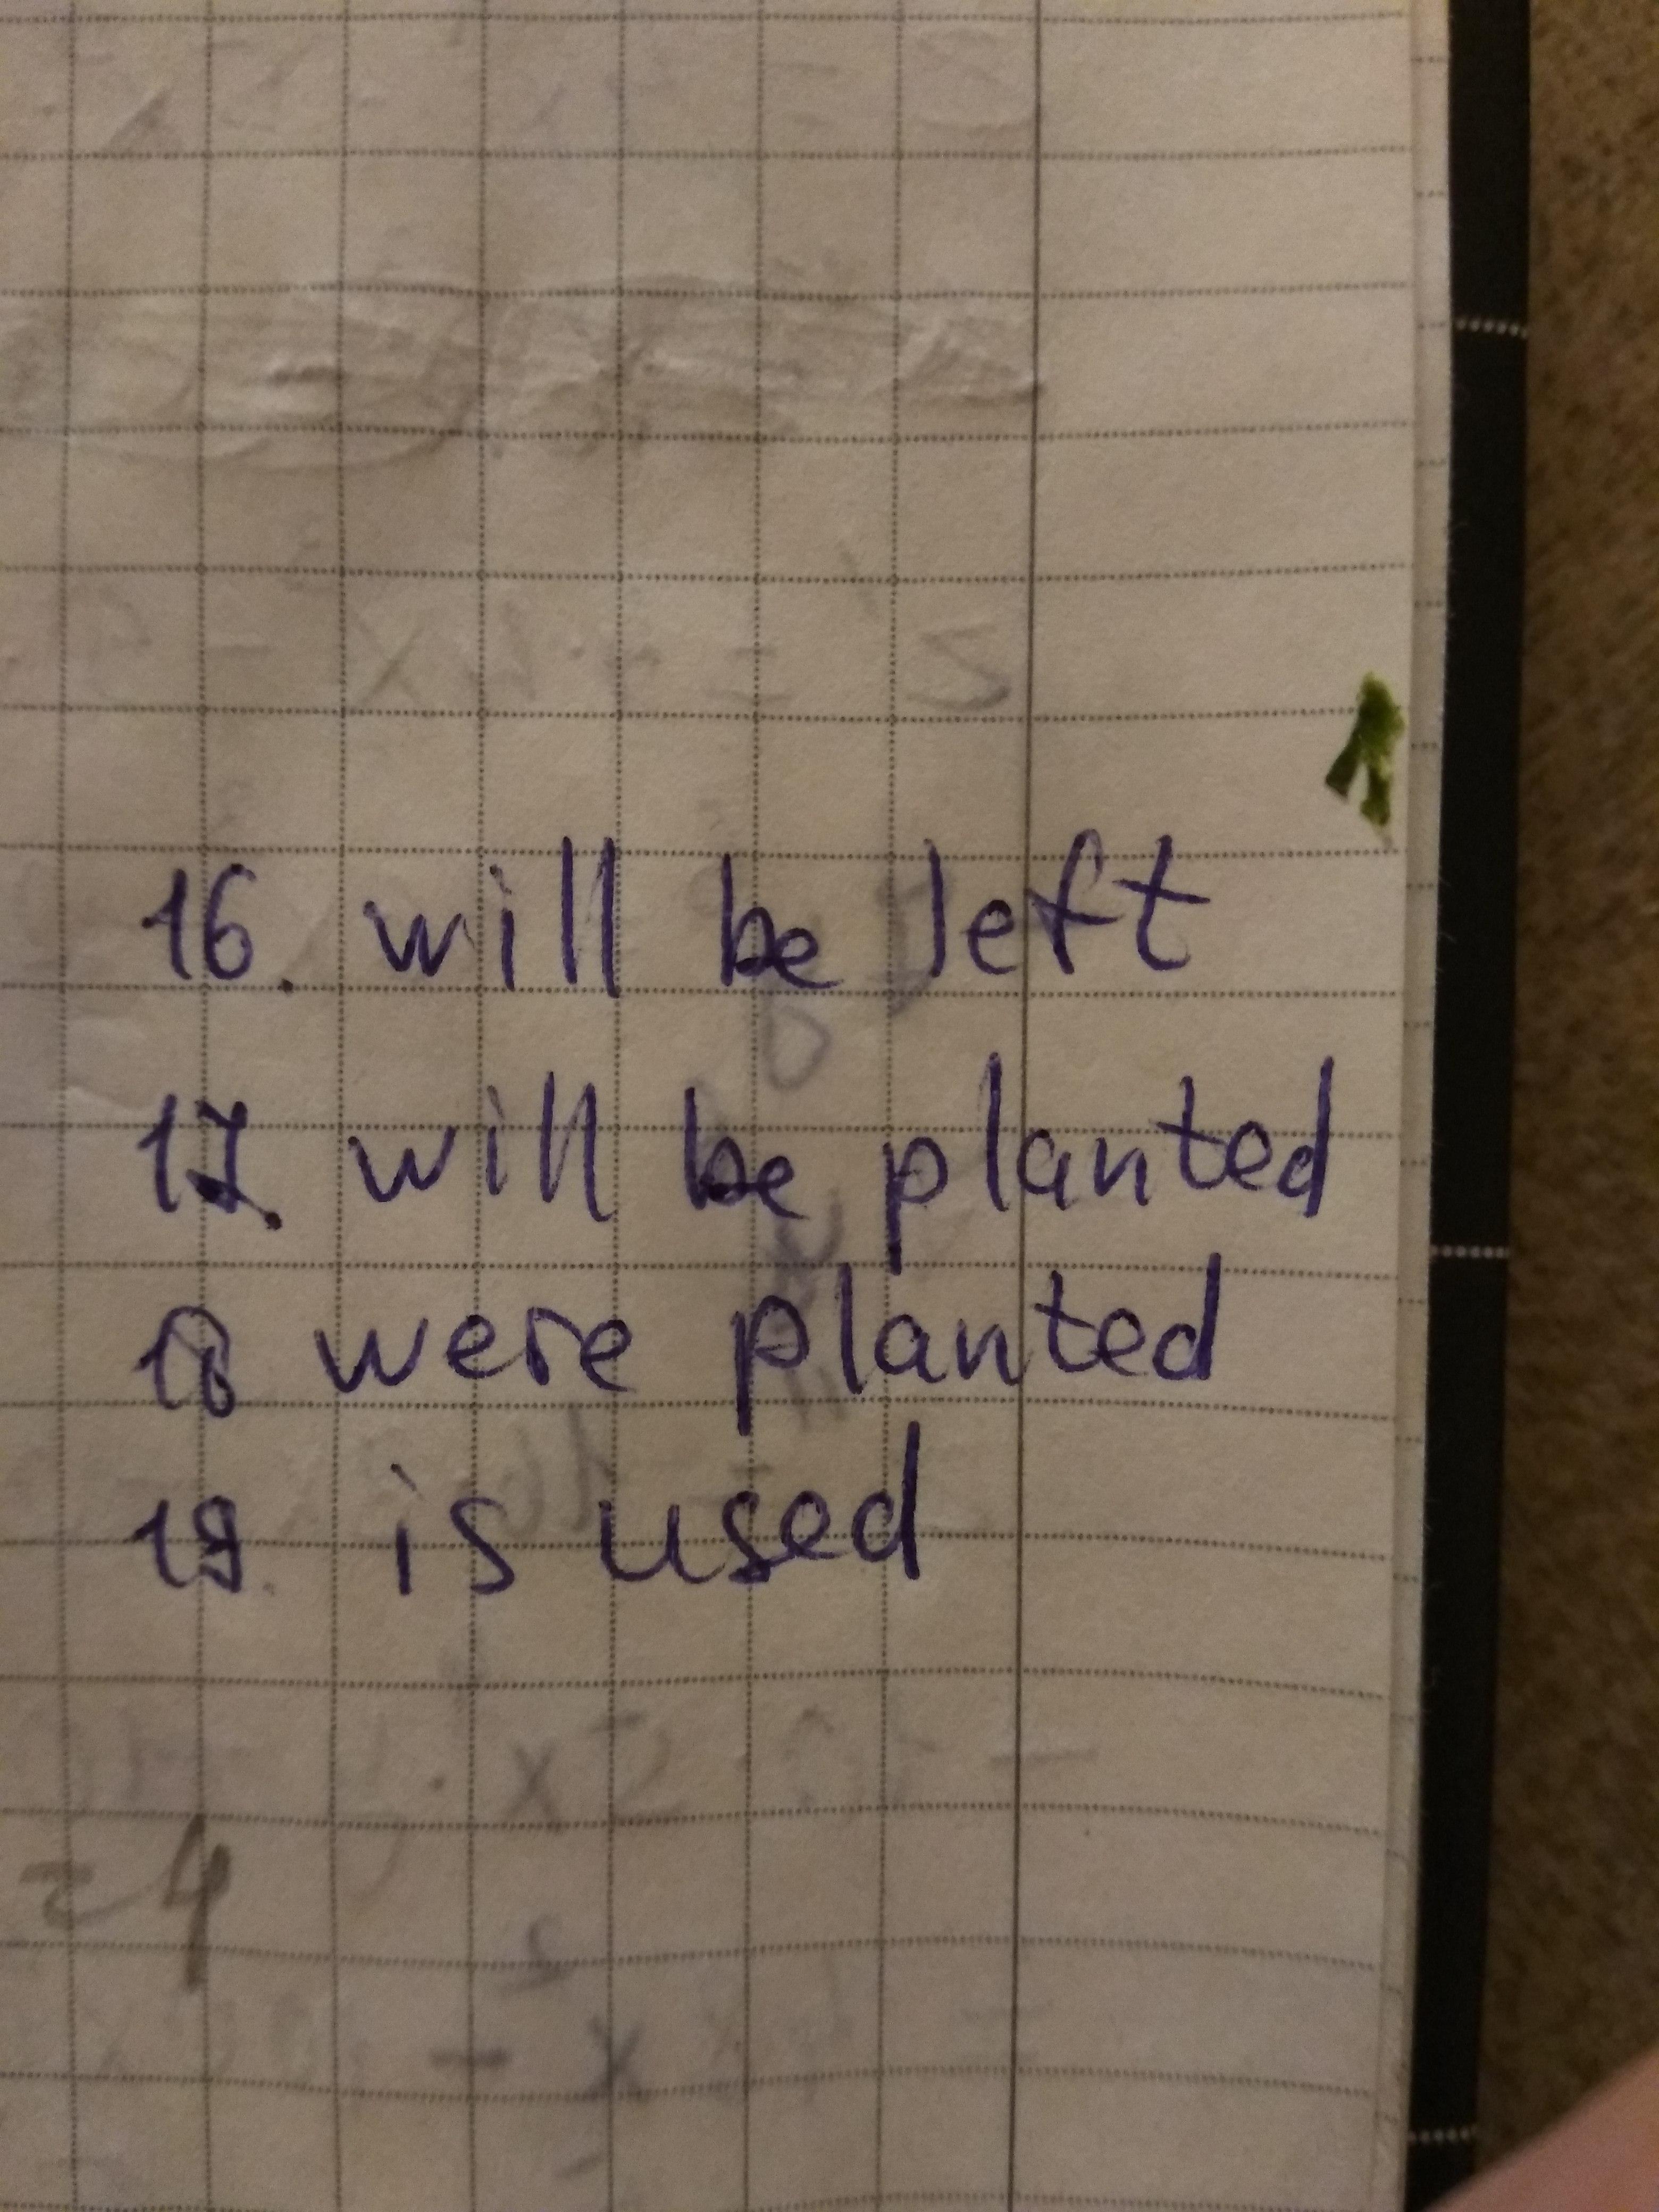 16. will be left
17. will be planted
18 were planted
19. is used
= 4